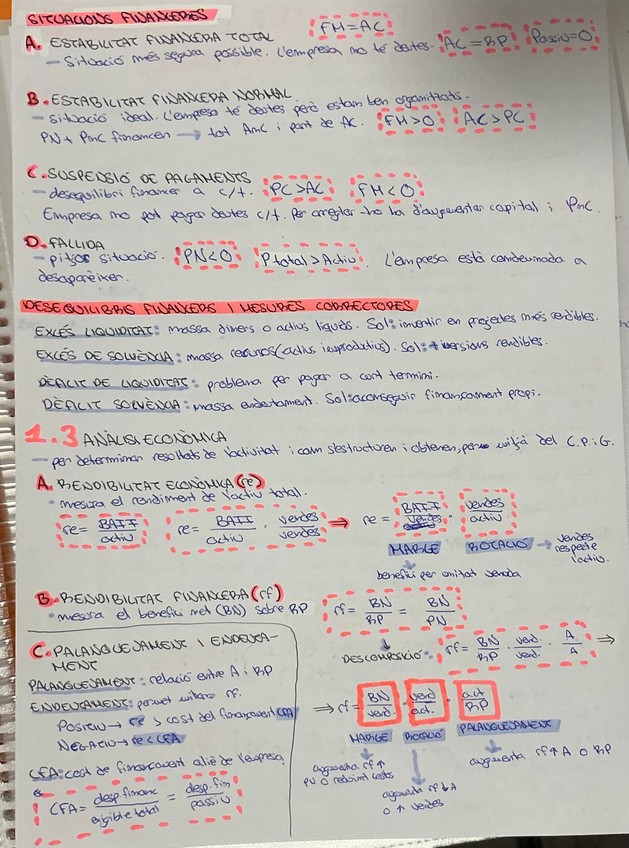 SITUACIONS FINANCERES
A. ESTABILITAT FINANCERA TOTAL FM=AC
- Situació més segura possible. L'empresa no té deutes. AC=RP Passiu=0
B. ESTABILITAT FINANCERA NORMAL
- situació ideal. L'empresa té deutes però estan ben organitzats.
PN + PnC financen → tot AnC i part de AC. FM>0 AC>PC
C. SUSPENSIÓ DE PAGAMENTS
- desequilibri financer a c/t. PC>AC FM<0
Empresa no pot pagar deutes c/t. Per arreglar-ho ha d'augmentar capital i PnC.
D. FALLIDA
- pitjor situació. PN<0 Ptotal>Actiu. L'empresa està condemnada a
desaparèixer.
DESEQUILIBRIS FINANCERS I MESURES CORRECTORES
EXCÉS LIQUIDITAT: massa diners o actius líquids. Sol: invertir en projectes més rendibles.
EXCÉS DE SOLVÈNCIA: massa recursos (actius improductius). Sol: inversions rendibles.
DÈFICIT DE LIQUIDITAT: problema per pagar a curt termini.
DÈFICIT SOLVÈNCIA: massa endeutament. Sol: aconseguir finançament propi.
1.3 ANÀLISI ECONÒMICA
- per determinar resultats de l'activitat i com s'estructuren i obtenen, del C.P.iG.
A. RENDIBILITAT ECONÒMICA (re)
• mesura el rendiment de l'actiu total.
re = BAII / actiu re = BAII / actiu · vendes / vendes ⇒ re = BAII / vendes · vendes / actiu
MARGE ROTACIÓ → vendes respecte l'actiu.
benefici per unitat venuda
B. RENDIBILITAT FINANCERA (rf)
• mesura el benefici net (BN) sobre RP
rf = BN / RP = BN / PN
DESCOMPOSICIÓ: rf = BN / RP · vend. / vend. · A / A ⇒
⇒ rf = BN / vend. · vend / act. · act / RP
MARGE ROTACIÓ PALANQUEJAMENT
augmenta rf ↑ PV o reduint costs
augmenta rf ↓ A o ↑ vendes
augmenta rf ↑ A o RP
C. PALANQUEJAMENT I ENDEUTA-
MENT
PALANQUEJAMENT: relació entre A i RP
ENDEUTAMENT: permet millorar rf.
POSITIU → re > cost del finançament CFA
NEGATIU → re < CFA
CFA: cost de finançament aliè de l'empresa.
CFA = desp. financ / exigible total = desp. fin / passiu